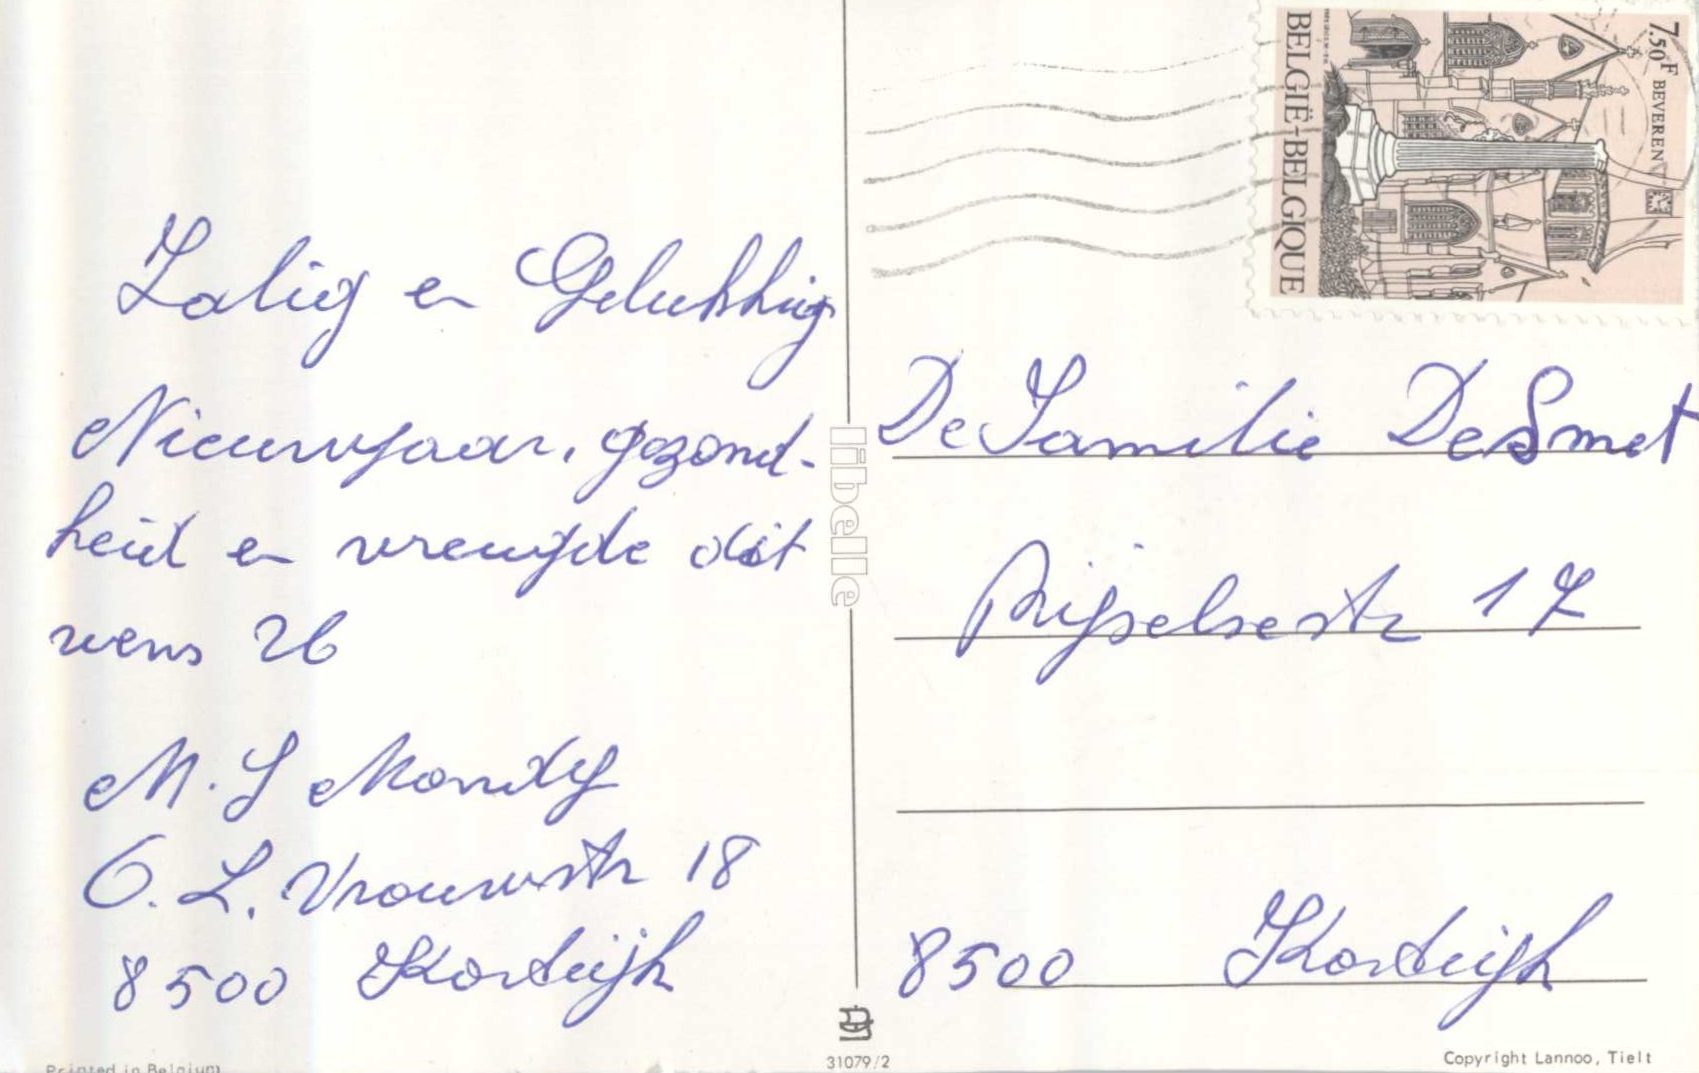 Zalig en Gelukkig
Nieuwjaar, gezond-
heid en vreugde dit
wens
M. J
O. L. Vrouwstr 18
8500 Kortrijk
Printed in Belgium
libelle
31079/2
7.50F BEVEREN
BELGIË-BELGIQUE
De Familie DeSmet
Rijselsestr 17
8500 Kortrijk
Copyright Lannoo, Tielt